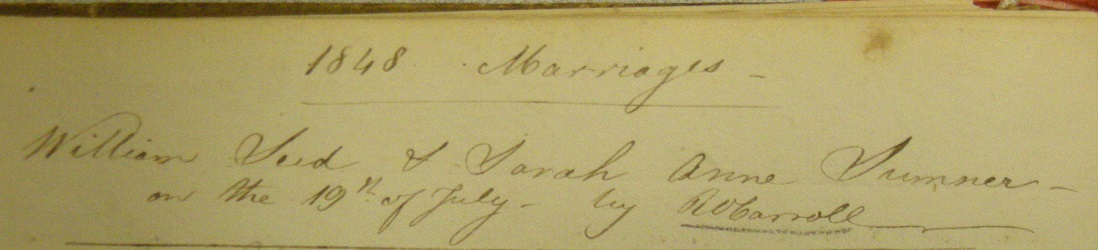 1848 Marriages -
William Seed & Sarah Anne Sumner -
on the 19th of July - by R O Carroll